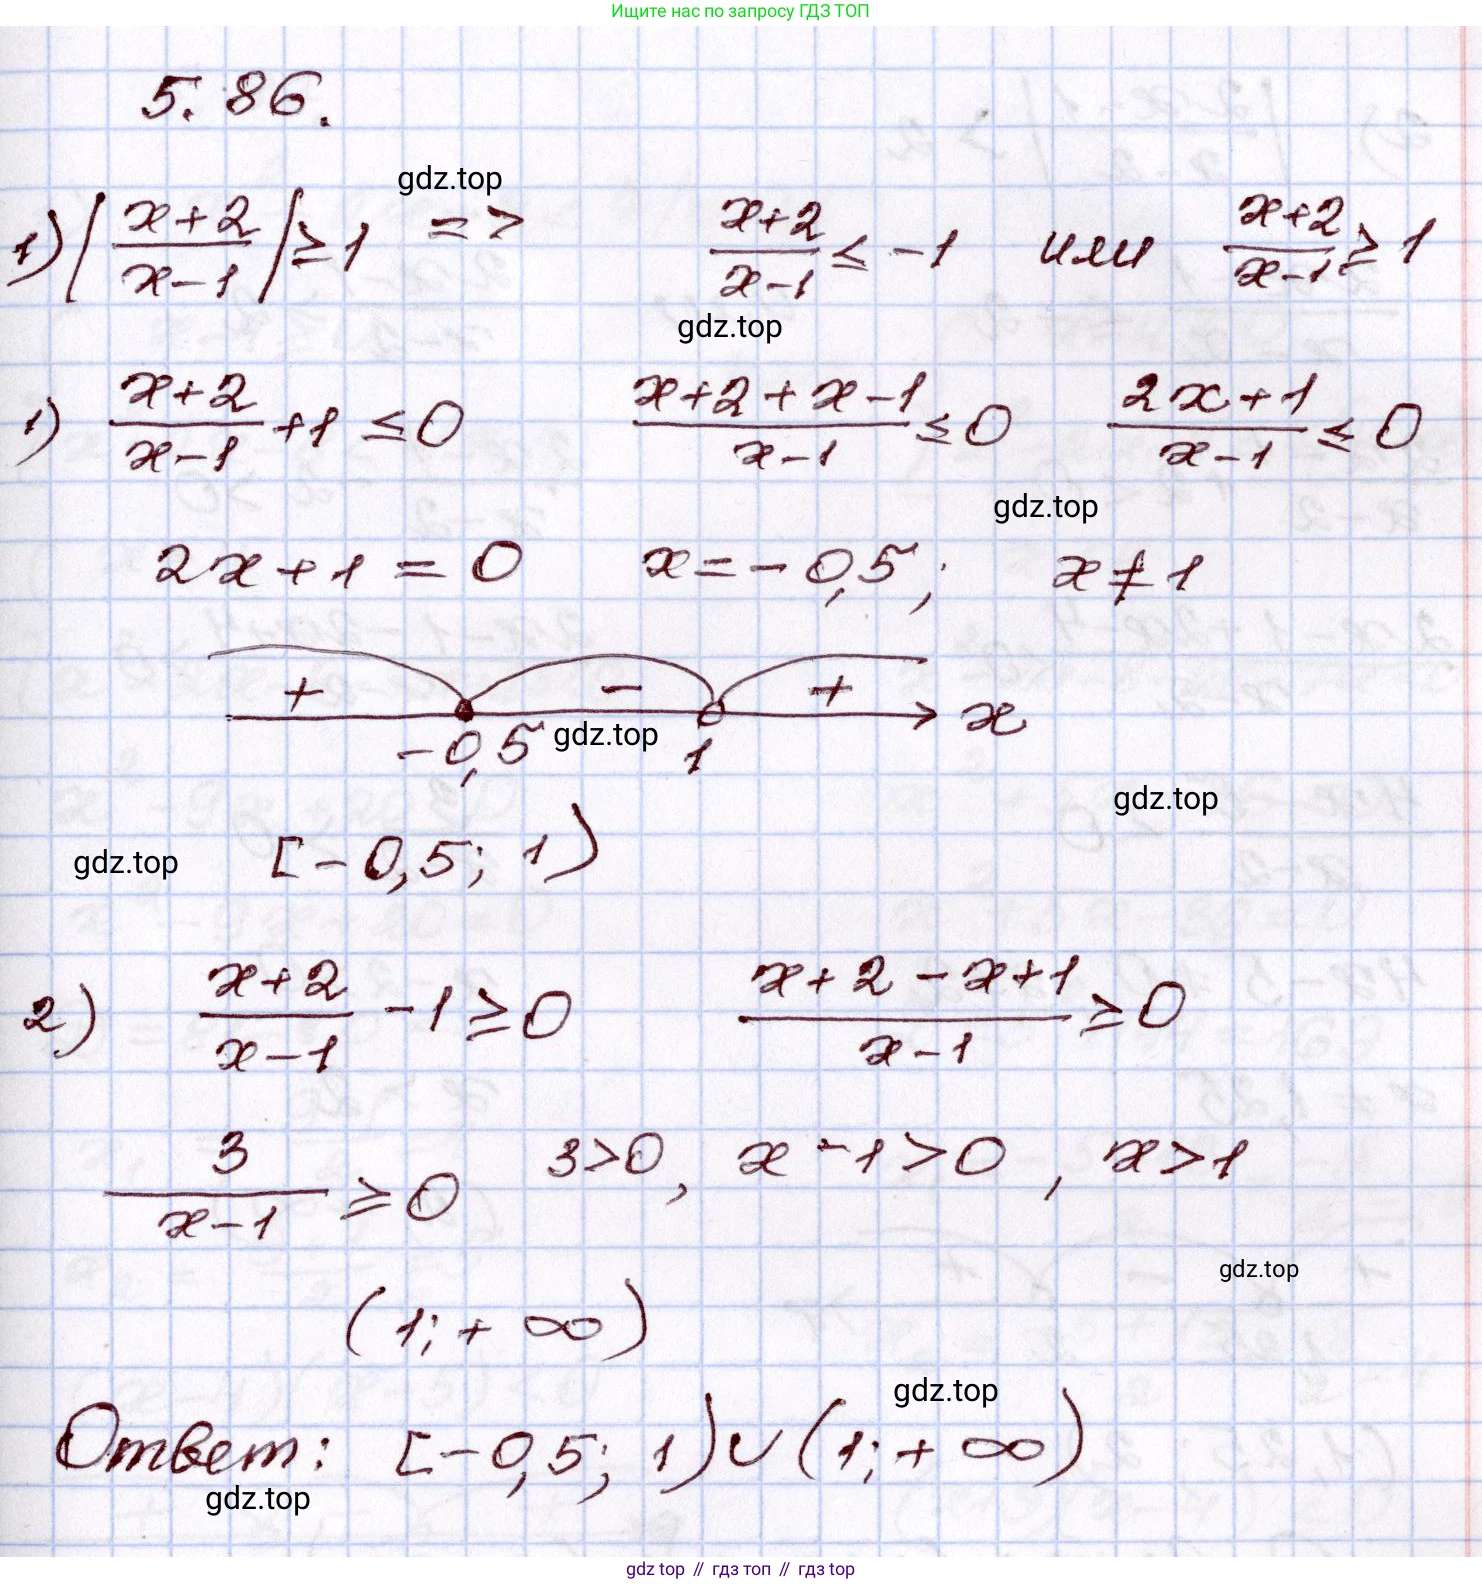 Ищите нас по запросу ГДЗ ТОП
5.86.
gdz.top
1) |(x+2)/(x-1)| ≥ 1 => (x+2)/(x-1) ≤ -1 или (x+2)/(x-1) ≥ 1
gdz.top
1) (x+2)/(x-1) + 1 ≤ 0 (x+2+x-1)/(x-1) ≤ 0 (2x+1)/(x-1) ≤ 0
gdz.top
2x+1=0 x=-0,5; x≠1
+ - + x
-0,5 gdz.top 1
gdz.top
gdz.top [-0,5; 1)
2) (x+2)/(x-1) - 1 ≥ 0 (x+2-x+1)/(x-1) ≥ 0
3/(x-1) ≥ 0 3>0, x-1>0, x>1
gdz.top
(1; +∞)
gdz.top
Ответ: [-0,5; 1)∪(1; +∞)
gdz.top
gdz top // гдз топ // gdz top